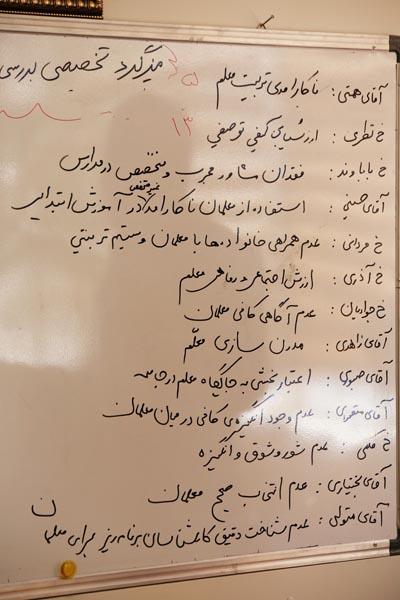 میزگرد تخصصی بررسی
۱۳
آقای همتی: ناکارآمدی تربیت معلم
خ نظری: ارزشیابی کیفی توصیفی
خ بابا وند: فقدان مشاور مجرب و متخصص در مدارس
آقای حسینی: استفاده از معلمان ناکارآمد غیرمتخصص در آموزش ابتدایی
خ مردانی: عدم همراهی خانواده ها با معلمان و سیستم تربیتی
خ آذری: ارزش اجتماعی و رفاهی معلم
خ جواریان: عدم آگاهی کافی معلمان
آقای زاهدی: مدرن سازی معلم
آقای صبوری: اعتبار بخشی به جایگاه معلم در جامعه
آقای منصوری: عدم وجود انگیزه ی کافی در میان معلمان
خ فلکی: عدم شور و شوق و انگیزه
آقای بختیاری: عدم انتخاب صحیح معلمان
ن
آقای متولی: عدم شناخت دقیق کارشناسان برنامه ریز برای معلم